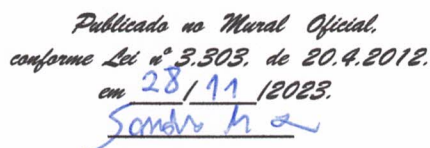 Publicado no Mural Oficial,
conforme Lei nº 3.303, de 20.4.2012.
em 28/11/2023.